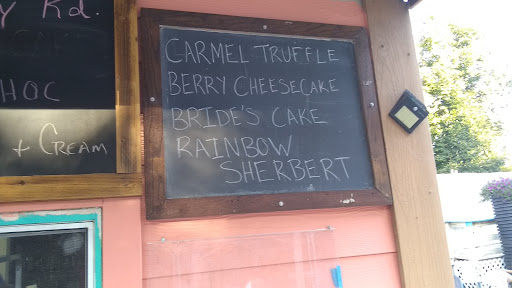 y Rd.
HOC
+ CREAM
CARMEL TRUFFLE
BERRY CHEESECAKE
BRIDE'S CAKE
RAINBOW
SHERBERT